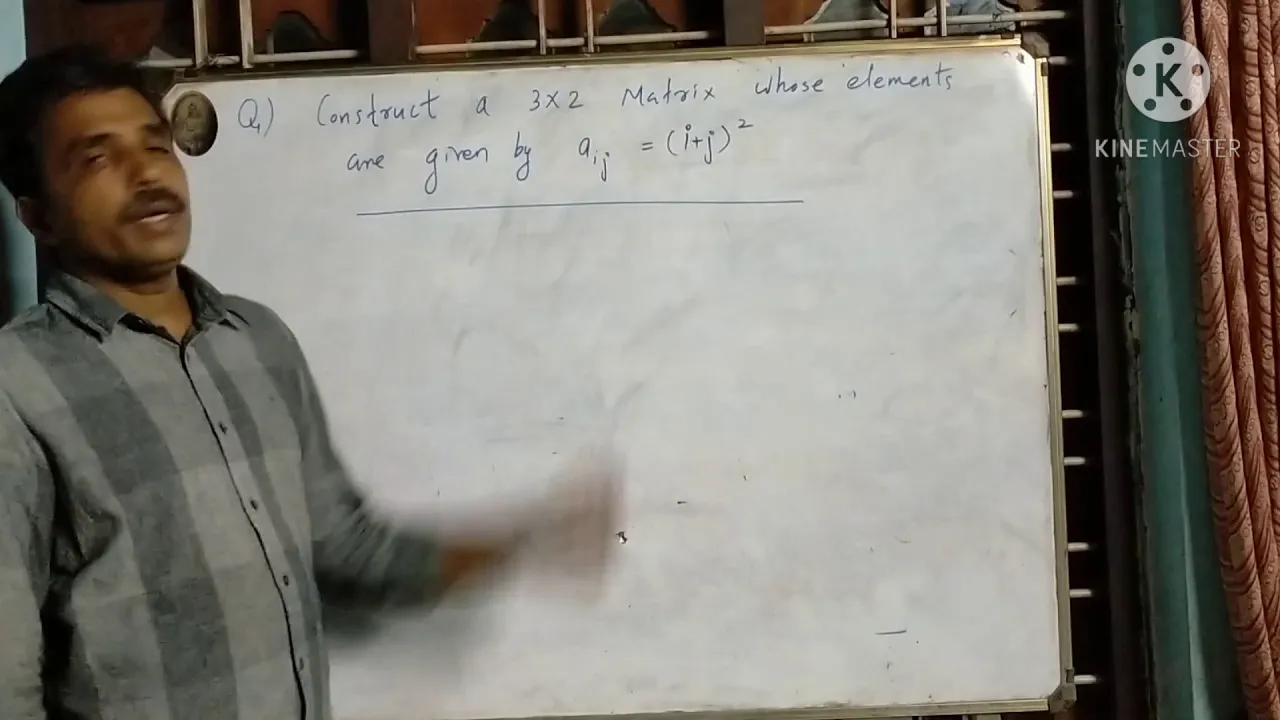 Q1) Construct a 3×2 Matrix whose elements
are given by aij = (i+j)²
K
KINEMASTER